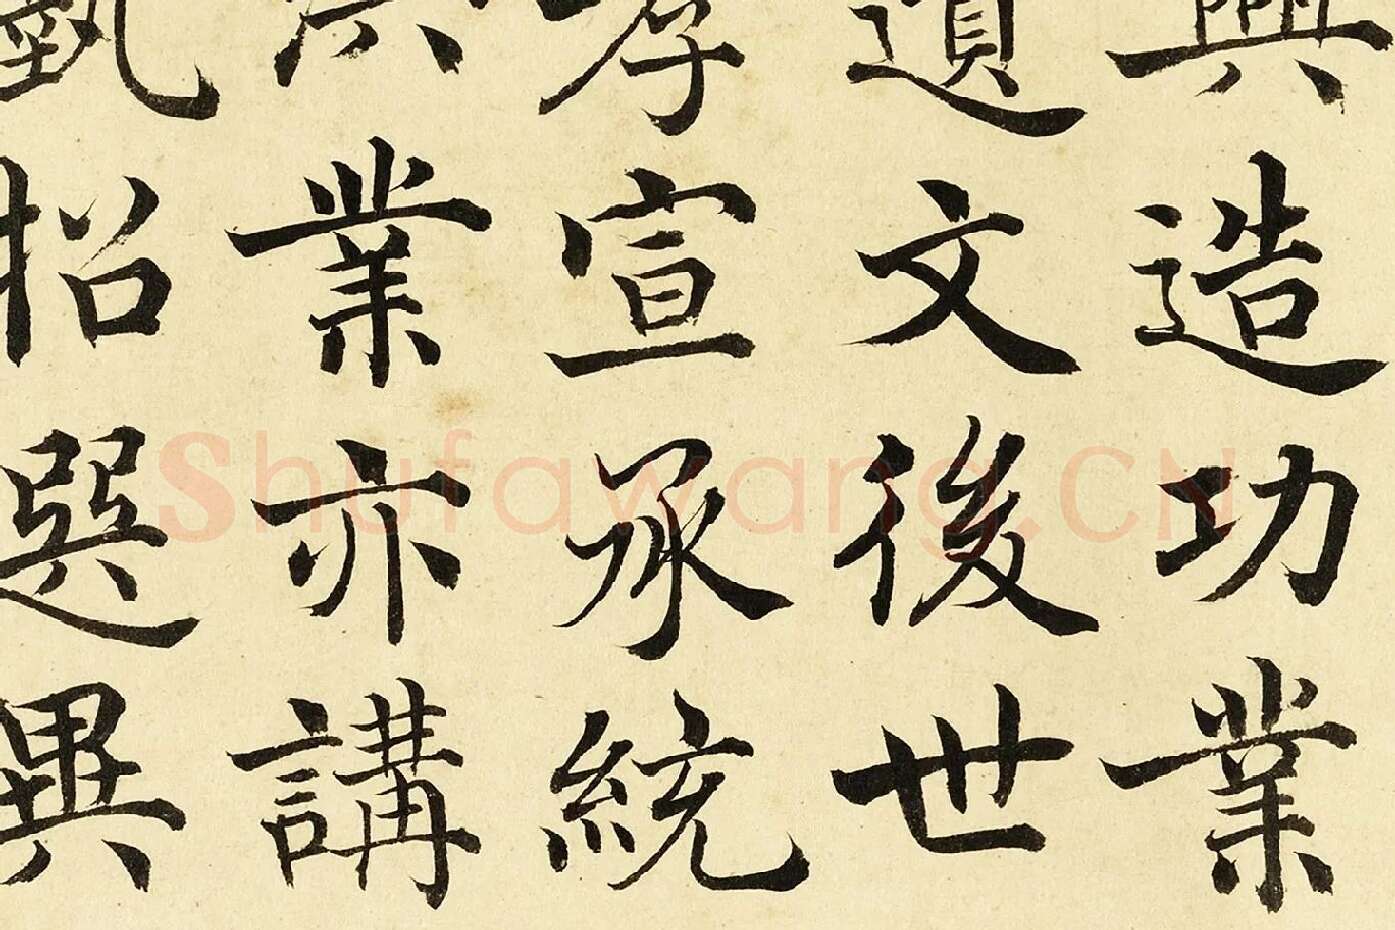 興造功業
遺文後世
孝宣承統
洪業亦講
招選異
Shufawang.CN